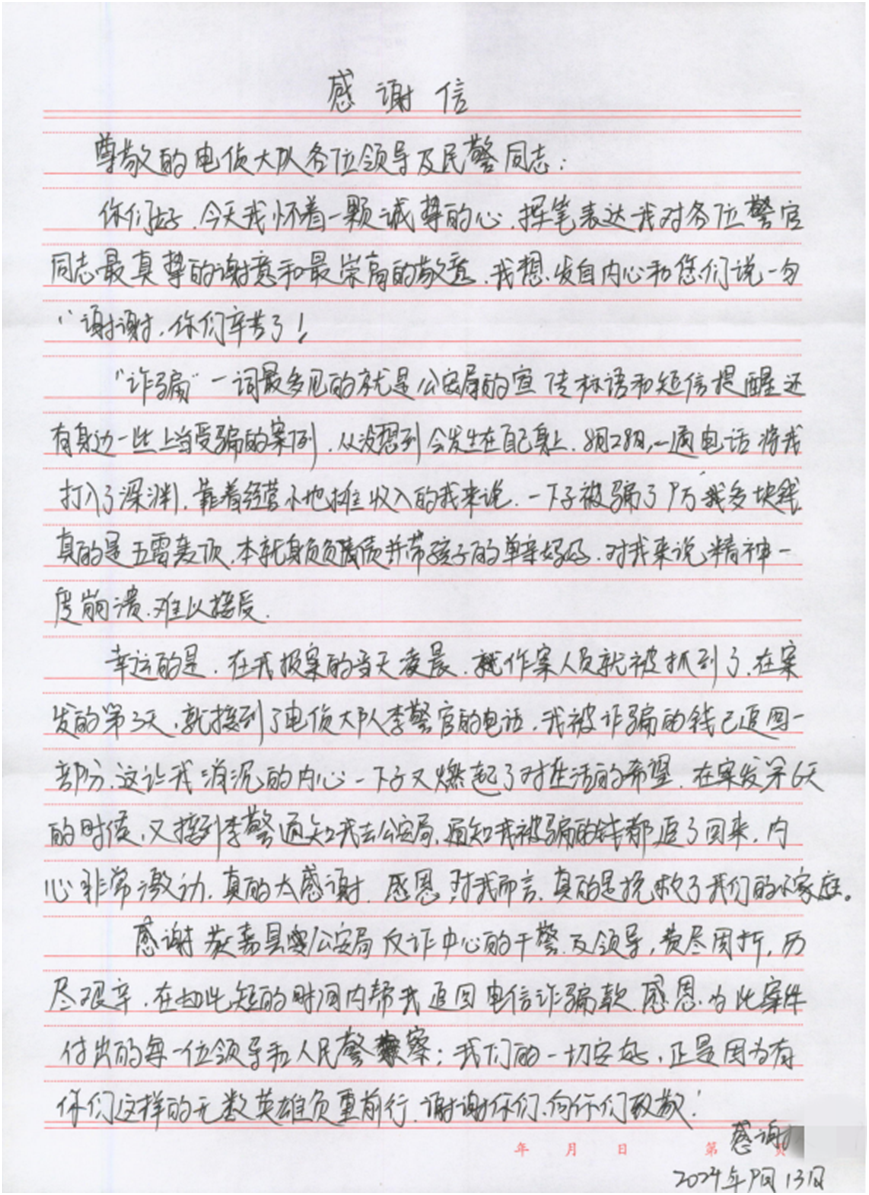 感谢信
尊敬的电侦大队各位领导及民警同志：
你们好，今天我怀着一颗诚挚的心，挥笔表达我对各位警官
同志最真挚的谢意和最崇高的敬意，我想发自内心和您们说一句
“谢谢，你们辛苦了！
“诈骗”一词最多见的就是公安局的宣传标语和短信提醒还
有身边一些上当受骗的案例，从没想到会发生在自己身上，8月28日，一通电话将我
打入了深渊，靠着经营小地摊收入的我来说，一下子被骗了9万 多块钱
真的是五雷轰顶，本就身负 债并带孩子的单亲妈妈，对我来说精神一
度崩溃，难以接受。
幸运的是，在我报案的当天凌晨，作案人员就被抓到了，在案
发的第3天，就接到了电侦大队李警官的电话，我被诈骗的钱已追回一
部分，这让我消沉的内心一下子又燃起了对生活的希望，在案发第6天
的时候，又接到李警通知我去公安局，通知我被骗的钱都追了回来，内
心非常激动，真的太感谢，感恩，对我而言，真的是挽救了我们的小家庭。
感谢获嘉县公安局反诈中心的干警及领导，费尽周折，历
尽艰辛，在如此短的时间内帮我追回电信诈骗款，感恩为此案件
付出的每一位领导和人民警察；我们的一切安好，正是因为有
你们这样的无数英雄负重前行，谢谢你们，向你们致敬！
感谢人
年 月 日 第 页
2024年9月13日